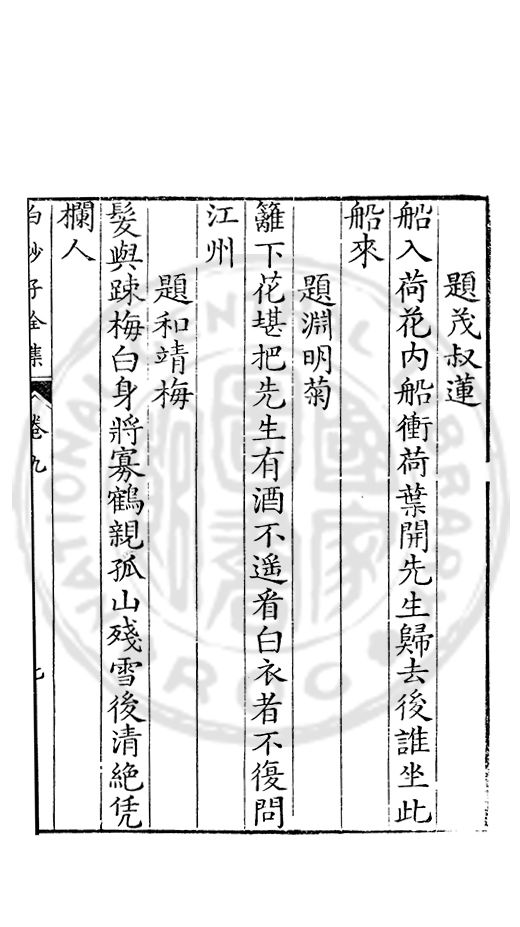 題茂叔蓮
船入荷花内船衝荷葉開先生歸去後誰坐此
船來
題淵明菊
籬下花堪把先生有酒不遥看白衣者不復問
江州
題和靖梅
髪與踈梅白身將寡鶴親孤山殘雪後清絶凭
欄人
白沙子全集
卷九
七